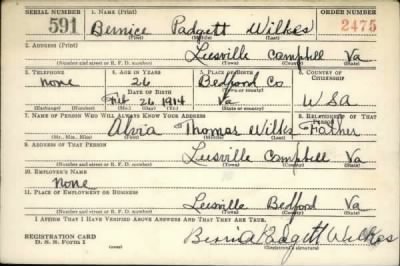 SERIAL NUMBER 1. NAME (Print) ORDER NUMBER
591 Bernice Padgett Wilkes 2475
(First) (Middle) (Last)
2. ADDRESS (Print)
Leesville Campbell Va
(Number and street or R. F. D. number) (Town) (County) (State)
3. TELEPHONE 4. AGE IN YEARS 5. PLACE OF BIRTH 6. COUNTRY OF CITIZENSHIP
None 26 Bedford Co.
DATE OF BIRTH (Town or county)
Feb 26 1914 Va USA
(Exchange) (Number) (Mo.) (Day) (Yr.) (State or country)
7. NAME OF PERSON WHO WILL ALWAYS KNOW YOUR ADDRESS 8. RELATIONSHIP OF THAT PERSON
Alvia Thomas Wilks Father
(Mr., Mrs., Miss) (First) (Middle) (Last)
9. ADDRESS OF THAT PERSON
Leesville Campbell Va
(Number and street or R. F. D. number) (Town) (County) (State)
10. EMPLOYER'S NAME
None
11. PLACE OF EMPLOYMENT OR BUSINESS
Leesville Bedford Va
(Number and street or R. F. D. number) (Town) (County) (State)
I AFFIRM THAT I HAVE VERIFIED ABOVE ANSWERS AND THAT THEY ARE TRUE.
REGISTRATION CARD
D. S. S. Form 1 Wilkes
(Registrant's signature)